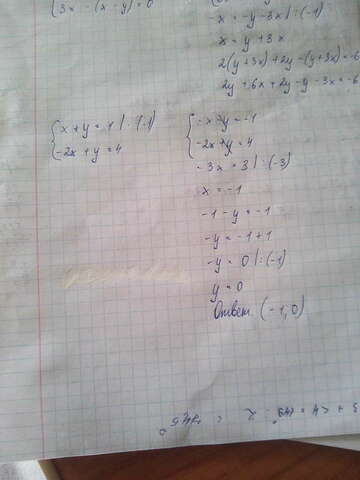 3x - (x - y) = 0
-x = -y - 3x | : (-1)
x = y + 3x
2(y + 3x) + 2y - (y + 3x) = -6
2y + 6x + 2y - y - 3x = -6
x + y = 1 | · (-1)
-2x + y = 4
-x - y = -1
-2x + y = 4
-3x = 3 | : (-3)
x = -1
-1 - y = -1
-y = -1 + 1
-y = 0 | : (-1)
y = 0
Ответ: (-1; 0)